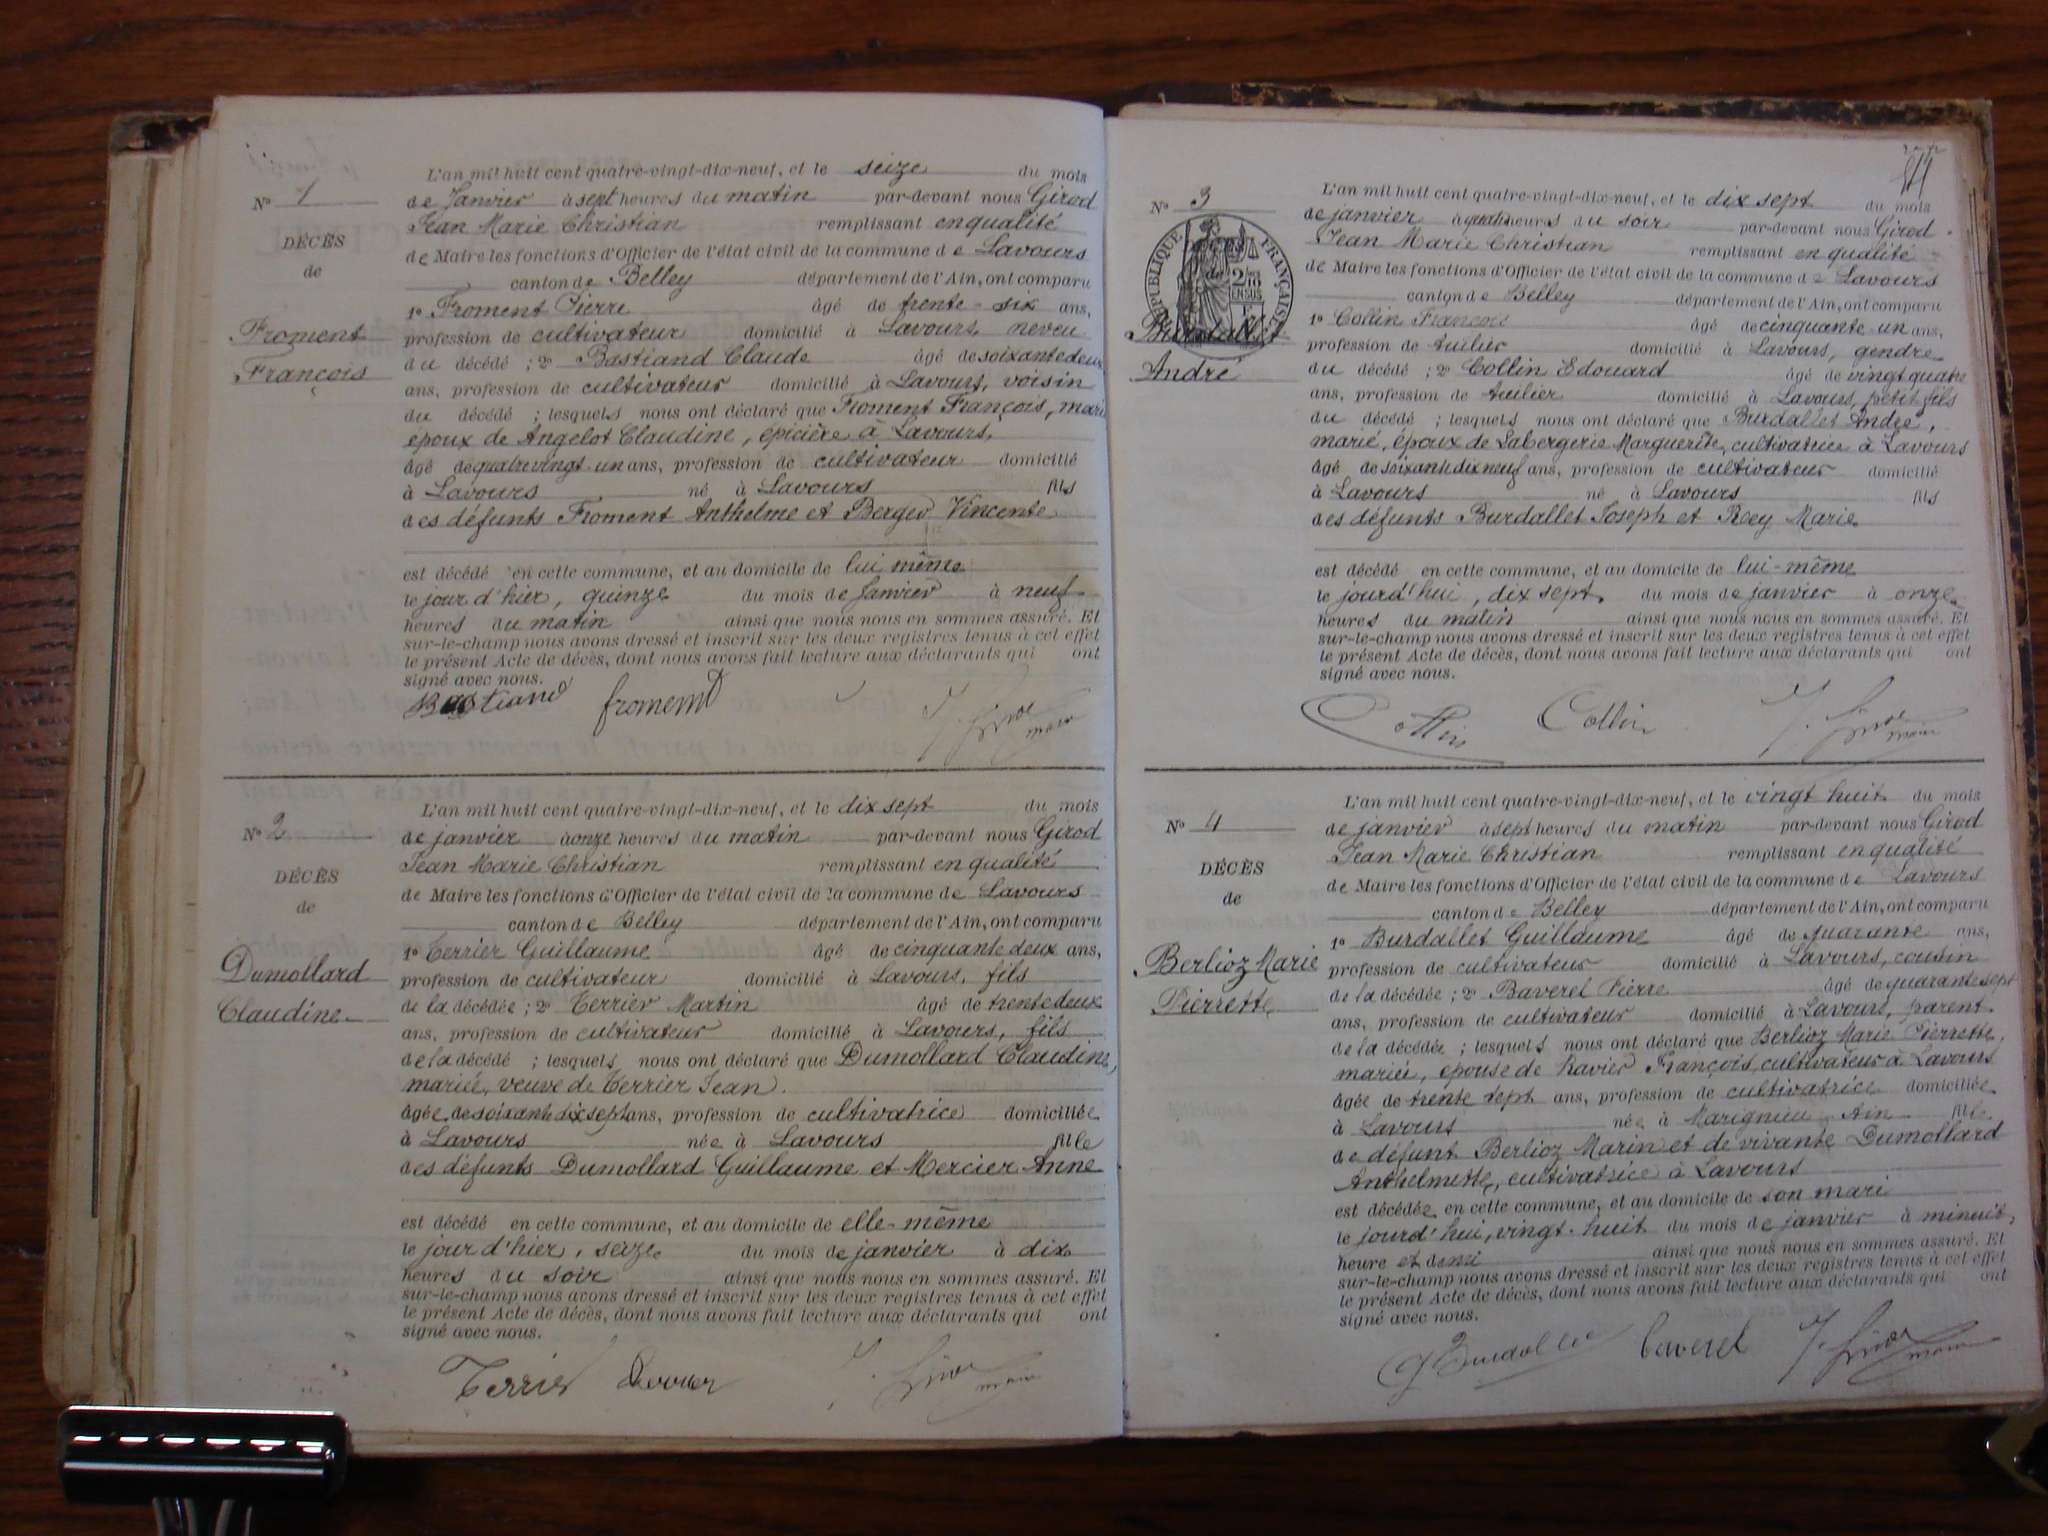 L'an mil huit cent quatre-vingt-dix-neuf, et le seize du mois
N° 1
de Janvier à sept heures du matin par-devant nous Girod
Jean Marie Christian remplissant en qualité
DÉCÈS
de Maire les fonctions d'Officier de l'état civil de la commune de Lavours
de
canton de Belley département de l'Ain, ont comparu
1° Froment Pierre âgé de trente-six ans,
Froment
profession de cultivateur domicilié à Lavours, neveu
François
du décédé ; 2° Bastiand Claude âgé de soixante deux
ans, profession de cultivateur domicilié à Lavours, voisin
du décédé ; lesquels nous ont déclaré que Froment François, marié
époux de Angelot Claudine, épicière à Lavours,
âgé de quatre vingt-un ans, profession de cultivateur domicilié
à Lavours né à Lavours fils
des défunts Froment Anthelme et Berger Vincente
est décédé en cette commune, et au domicile de lui même
le jour d'hier, quinze du mois de Janvier à neuf
heures du matin ainsi que nous nous en sommes assuré. Et
sur-le-champ nous avons dressé et inscrit sur les deux registres tenus à cet effet
le présent Acte de décès, dont nous avons fait lecture aux déclarants qui ont
signé avec nous.
Bastiand froment J. Girod maire
L'an mil huit cent quatre-vingt-dix-neuf, et le dix sept du mois
N° 2
de janvier à onze heures du matin par-devant nous Girod
Jean Marie Christian remplissant en qualité
DÉCÈS
de Maire les fonctions d'Officier de l'état civil de la commune de Lavours
de
canton de Belley département de l'Ain, ont comparu
1° Terrier Guillaume âgé de cinquante deux ans,
Dumollard
profession de cultivateur domicilié à Lavours, fils
Claudine
de la décédée ; 2° Terrier Martin âgé de trente deux
ans, profession de cultivateur domicilié à Lavours, fils
de la décédé ; lesquels nous ont déclaré que Dumollard Claudine,
mariée, veuve de Terrier Jean.
âgée de soixante dix sept ans, profession de cultivatrice domiciliée
à Lavours née à Lavours fille
des défunts Dumollard Guillaume et Mercier Anne
est décédé en cette commune, et au domicile de elle-même
le jour d'hier, seize du mois de janvier à dix
heures du soir ainsi que nous nous en sommes assuré. Et
sur-le-champ nous avons dressé et inscrit sur les deux registres tenus à cet effet
le présent Acte de décès, dont nous avons fait lecture aux déclarants qui ont
signé avec nous.
Terrier J. Girod maire
L'an mil huit cent quatre-vingt-dix-neuf, et le dix sept du mois
N° 3
de janvier à quatre heures du soir par-devant nous Girod
Jean Marie Christian remplissant en qualité
RÉPUBLIQUE FRANÇAISE
de Maire les fonctions d'Officier de l'état civil de la commune de Lavours
2/10 EN SUS
canton de Belley département de l'Ain, ont comparu
1° Collin François âgé de cinquante-un ans,
Burdallet
profession de tuilier domicilié à Lavours, gendre
André
du décédé ; 2° Collin Edouard âgé de vingt quatre
ans, profession de tuilier domicilié à Lavours, petit fils
du décédé ; lesquels nous ont déclaré que Burdallet André,
marié, époux de Labergerie Marguerite, cultivatrice à Lavours
âgé de soixante dix neuf ans, profession de cultivateur domicilié
à Lavours né à Lavours fils
des défunts Burdallet Joseph et Rey Marie
est décédé en cette commune, et au domicile de lui-même
le jourd'hui, dix sept, du mois de janvier à onze
heures du matin ainsi que nous nous en sommes assuré. Et
sur-le-champ nous avons dressé et inscrit sur les deux registres tenus à cet effet
le présent Acte de décès, dont nous avons fait lecture aux déclarants qui ont
signé avec nous.
Collin Collin J. Girod maire
L'an mil huit cent quatre-vingt-dix-neuf, et le vingt huit du mois
N° 4
de janvier à sept heures du matin par-devant nous Girod
Jean Marie Christian remplissant en qualité
DÉCÈS
de Maire les fonctions d'Officier de l'état civil de la commune de Lavours
de
canton de Belley département de l'Ain, ont comparu
1° Burdallet Guillaume âgé de quarante ans,
Berlioz Marie
profession de cultivateur domicilié à Lavours, cousin
Pierrette
de la décédée ; 2° Baverel Pierre âgé de quarante sept
ans, profession de cultivateur domicilié à Lavours, parent
de la décédée ; lesquels nous ont déclaré que Berlioz Marie Pierrette,
mariée, épouse de Ravier François, cultivateur à Lavours
âgée de trente sept ans, profession de cultivatrice domiciliée
à Lavours née à Marignieu Ain fille
de défunt Berlioz Marin et de vivante Dumollard
Anthelmette, cultivatrice à Lavours
est décédée en cette commune, et au domicile de son mari
le jourd'hui, vingt-huit du mois de janvier à minuit,
heure et demi ainsi que nous nous en sommes assuré. Et
sur-le-champ nous avons dressé et inscrit sur les deux registres tenus à cet effet
le présent Acte de décès, dont nous avons fait lecture aux déclarants qui ont
signé avec nous.
Baverel J. Girod maire